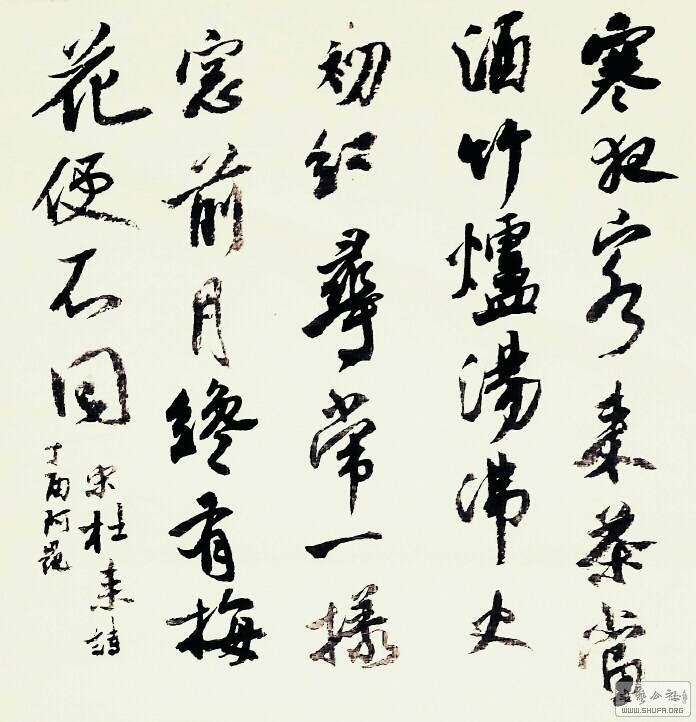 寒夜客来茶當
酒竹爐湯沸火
初紅尋常一樣
窓前月終有梅
花便不同
宋杜耒詩
丁酉阿
WWW.SHUFA.ORG